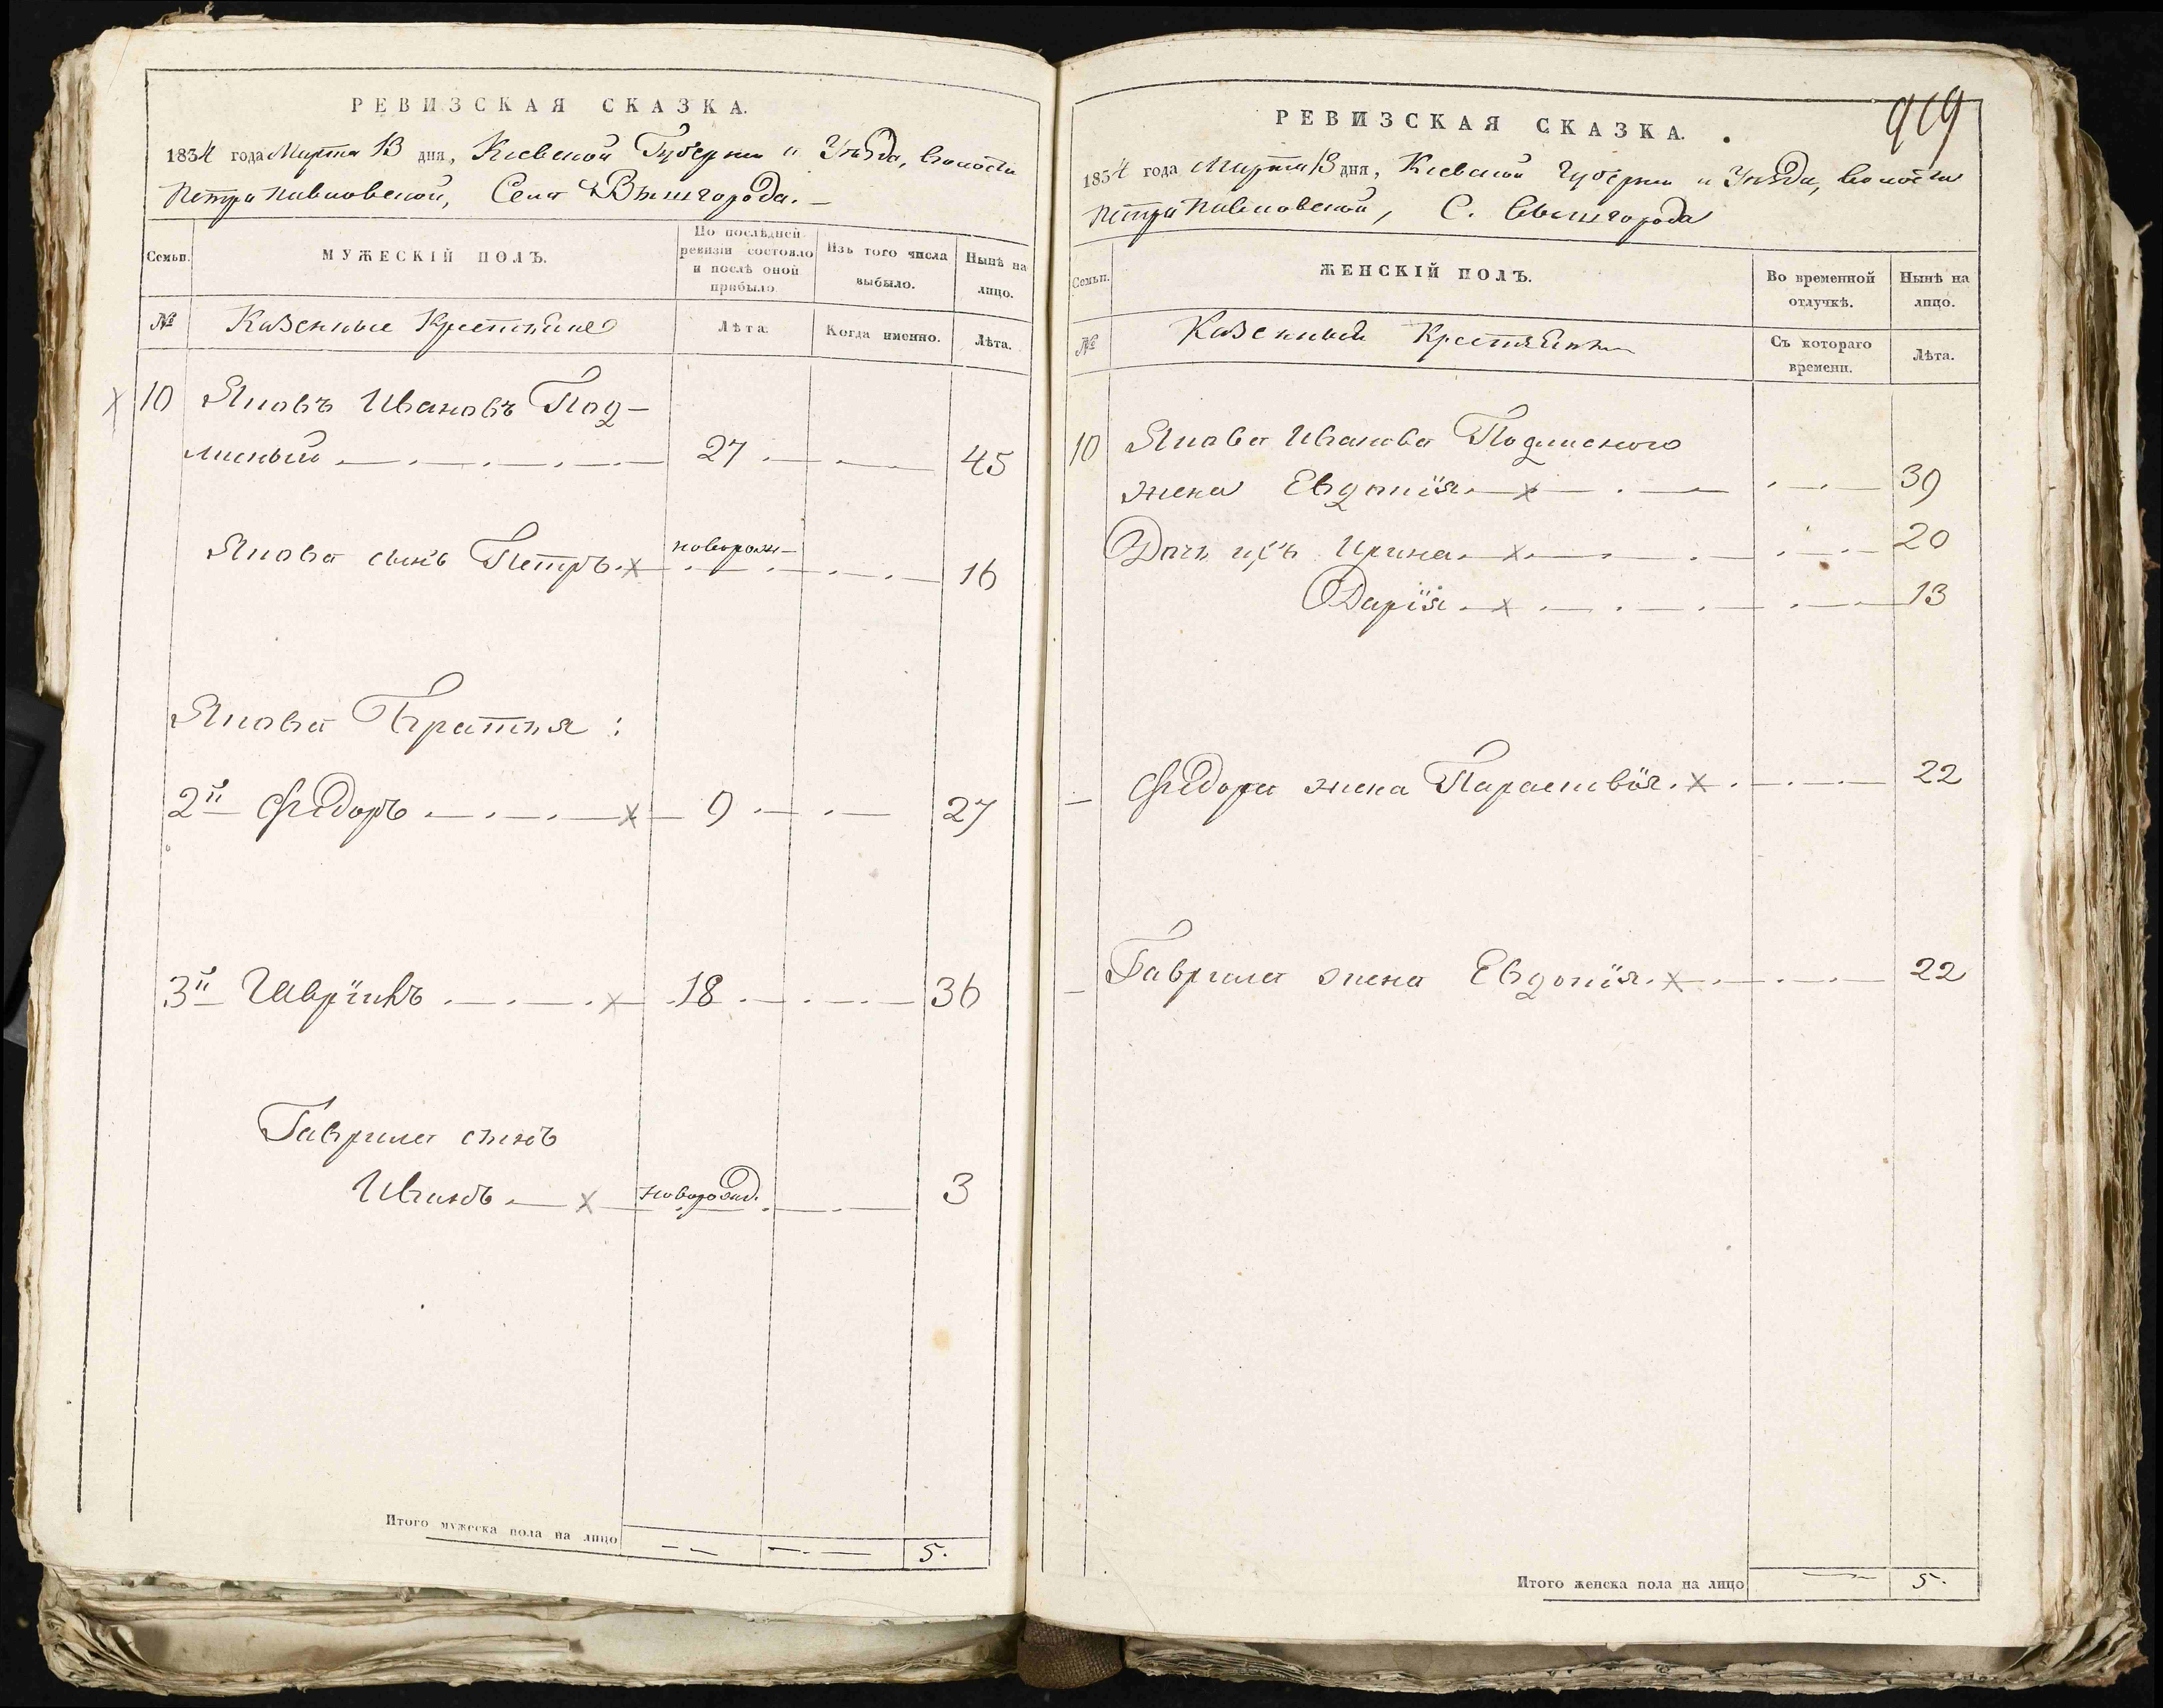 РЕВИЗСКАЯ СКАЗКА.
1854 года Марта 13 дня, Кіевской Губерніи и Уѣзда, волости
Петропавловской, Села Вышгорода. —
Семьи.
МУЖЕСКІЙ ПОЛЪ.
По послѣдней
ревизіи состояло
и послѣ оной
прибыло
Изъ того числа
выбыло.
Нынѣ на
лицо.
№
Казенные Крестьяне
Лѣта.
Когда именно.
Лѣта.
10 Яковъ Ивановъ Под-
лисный 27 45
Якова сынъ Петръ новорож- 16
Якова Братья:
2й Ѳедоръ 9 27
3й Гаврiилъ 18 36
Гаврила сынъ
Иванъ новорожд. 3
Итого мужеска пола на лицо 5.
919
РЕВИЗСКАЯ СКАЗКА.
1854 года Марта 13 дня, Кіевской Губерніи и Уѣзда, волости
Петропавловской, С. Вышгорода
Семьи.
ЖЕНСКІЙ ПОЛЪ.
Во временной
отлучкѣ.
Нынѣ на
лицо.
№
Казенный Крестьянинъ
Съ котораго
времени.
Лѣта.
10 Якова Иванова Подлиского
жена Евдокія 39
Дочь ихъ Ирина 20
Дарія 13
— Ѳедора жена Параскевія 22
— Гаврила жена Евдокія 22
Итого женска пола на лицо 5.